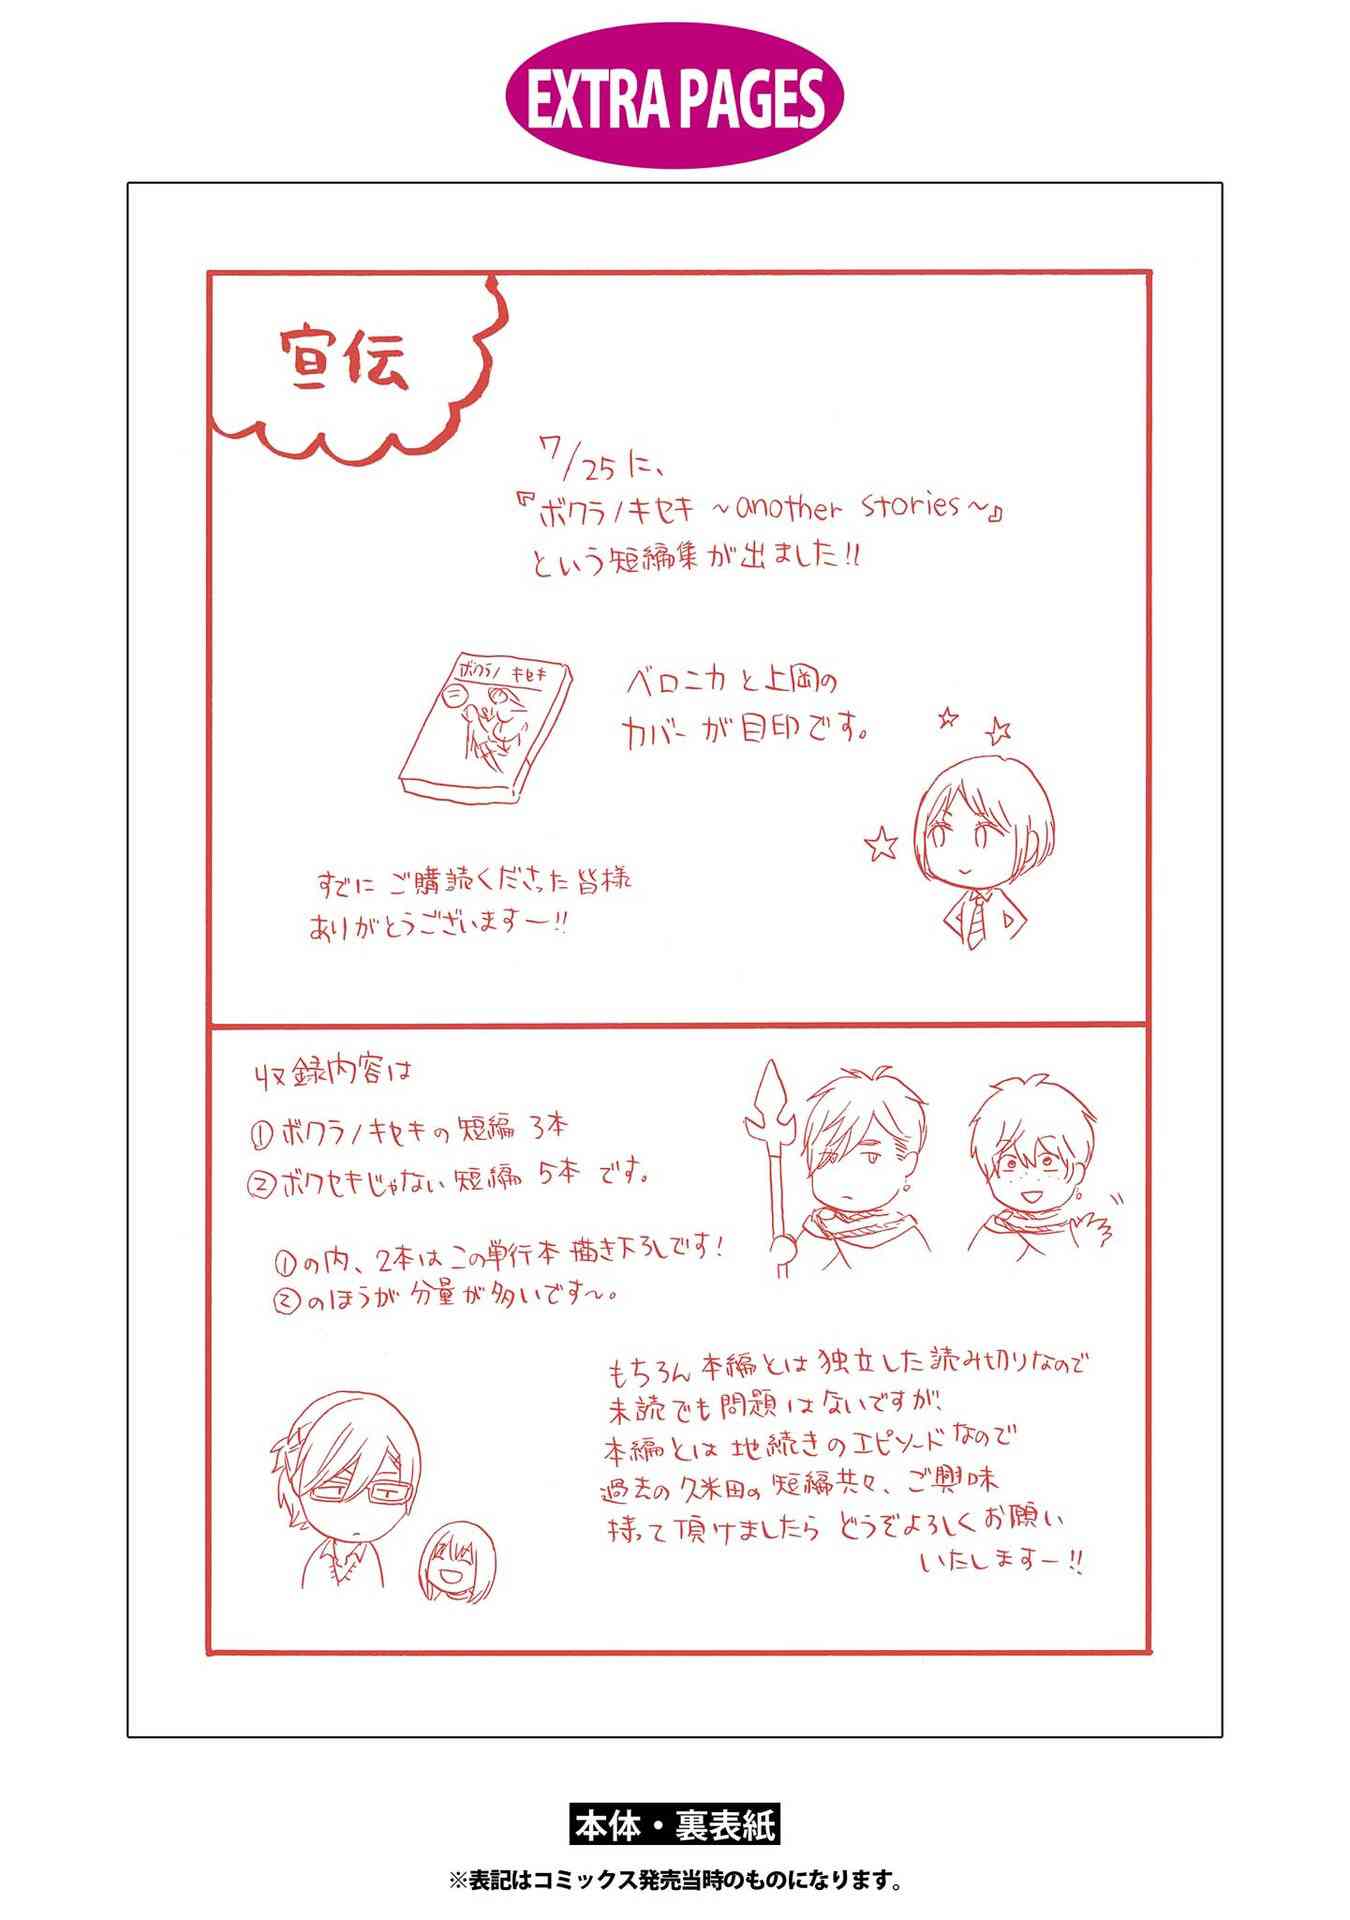 EXTRA PAGES
宣伝
7/25に、
『ボクラノキセキ ～another stories～』
という短編集が出ました!!
ボクラノ キセキ
ベロニカと上岡の
カバーが目印です。
すでにご購読くださった皆様
ありがとうございますー!!
収録内容は
①ボクラノキセキの短編 3本
②ボクセキじゃない短編 5本です。
①の内、2本はこの単行本描き下ろしです!
②のほうが分量が多いです～。
もちろん本編とは独立した読み切りなので
未読でも問題はないですが、
本編とは地続きのエピソードなので
過去の久米田の短編共々、ご興味
持って頂けましたらどうぞよろしくお願い
いたしますー!!
本体・裏表紙
※表記はコミックス発売当時のものになります。